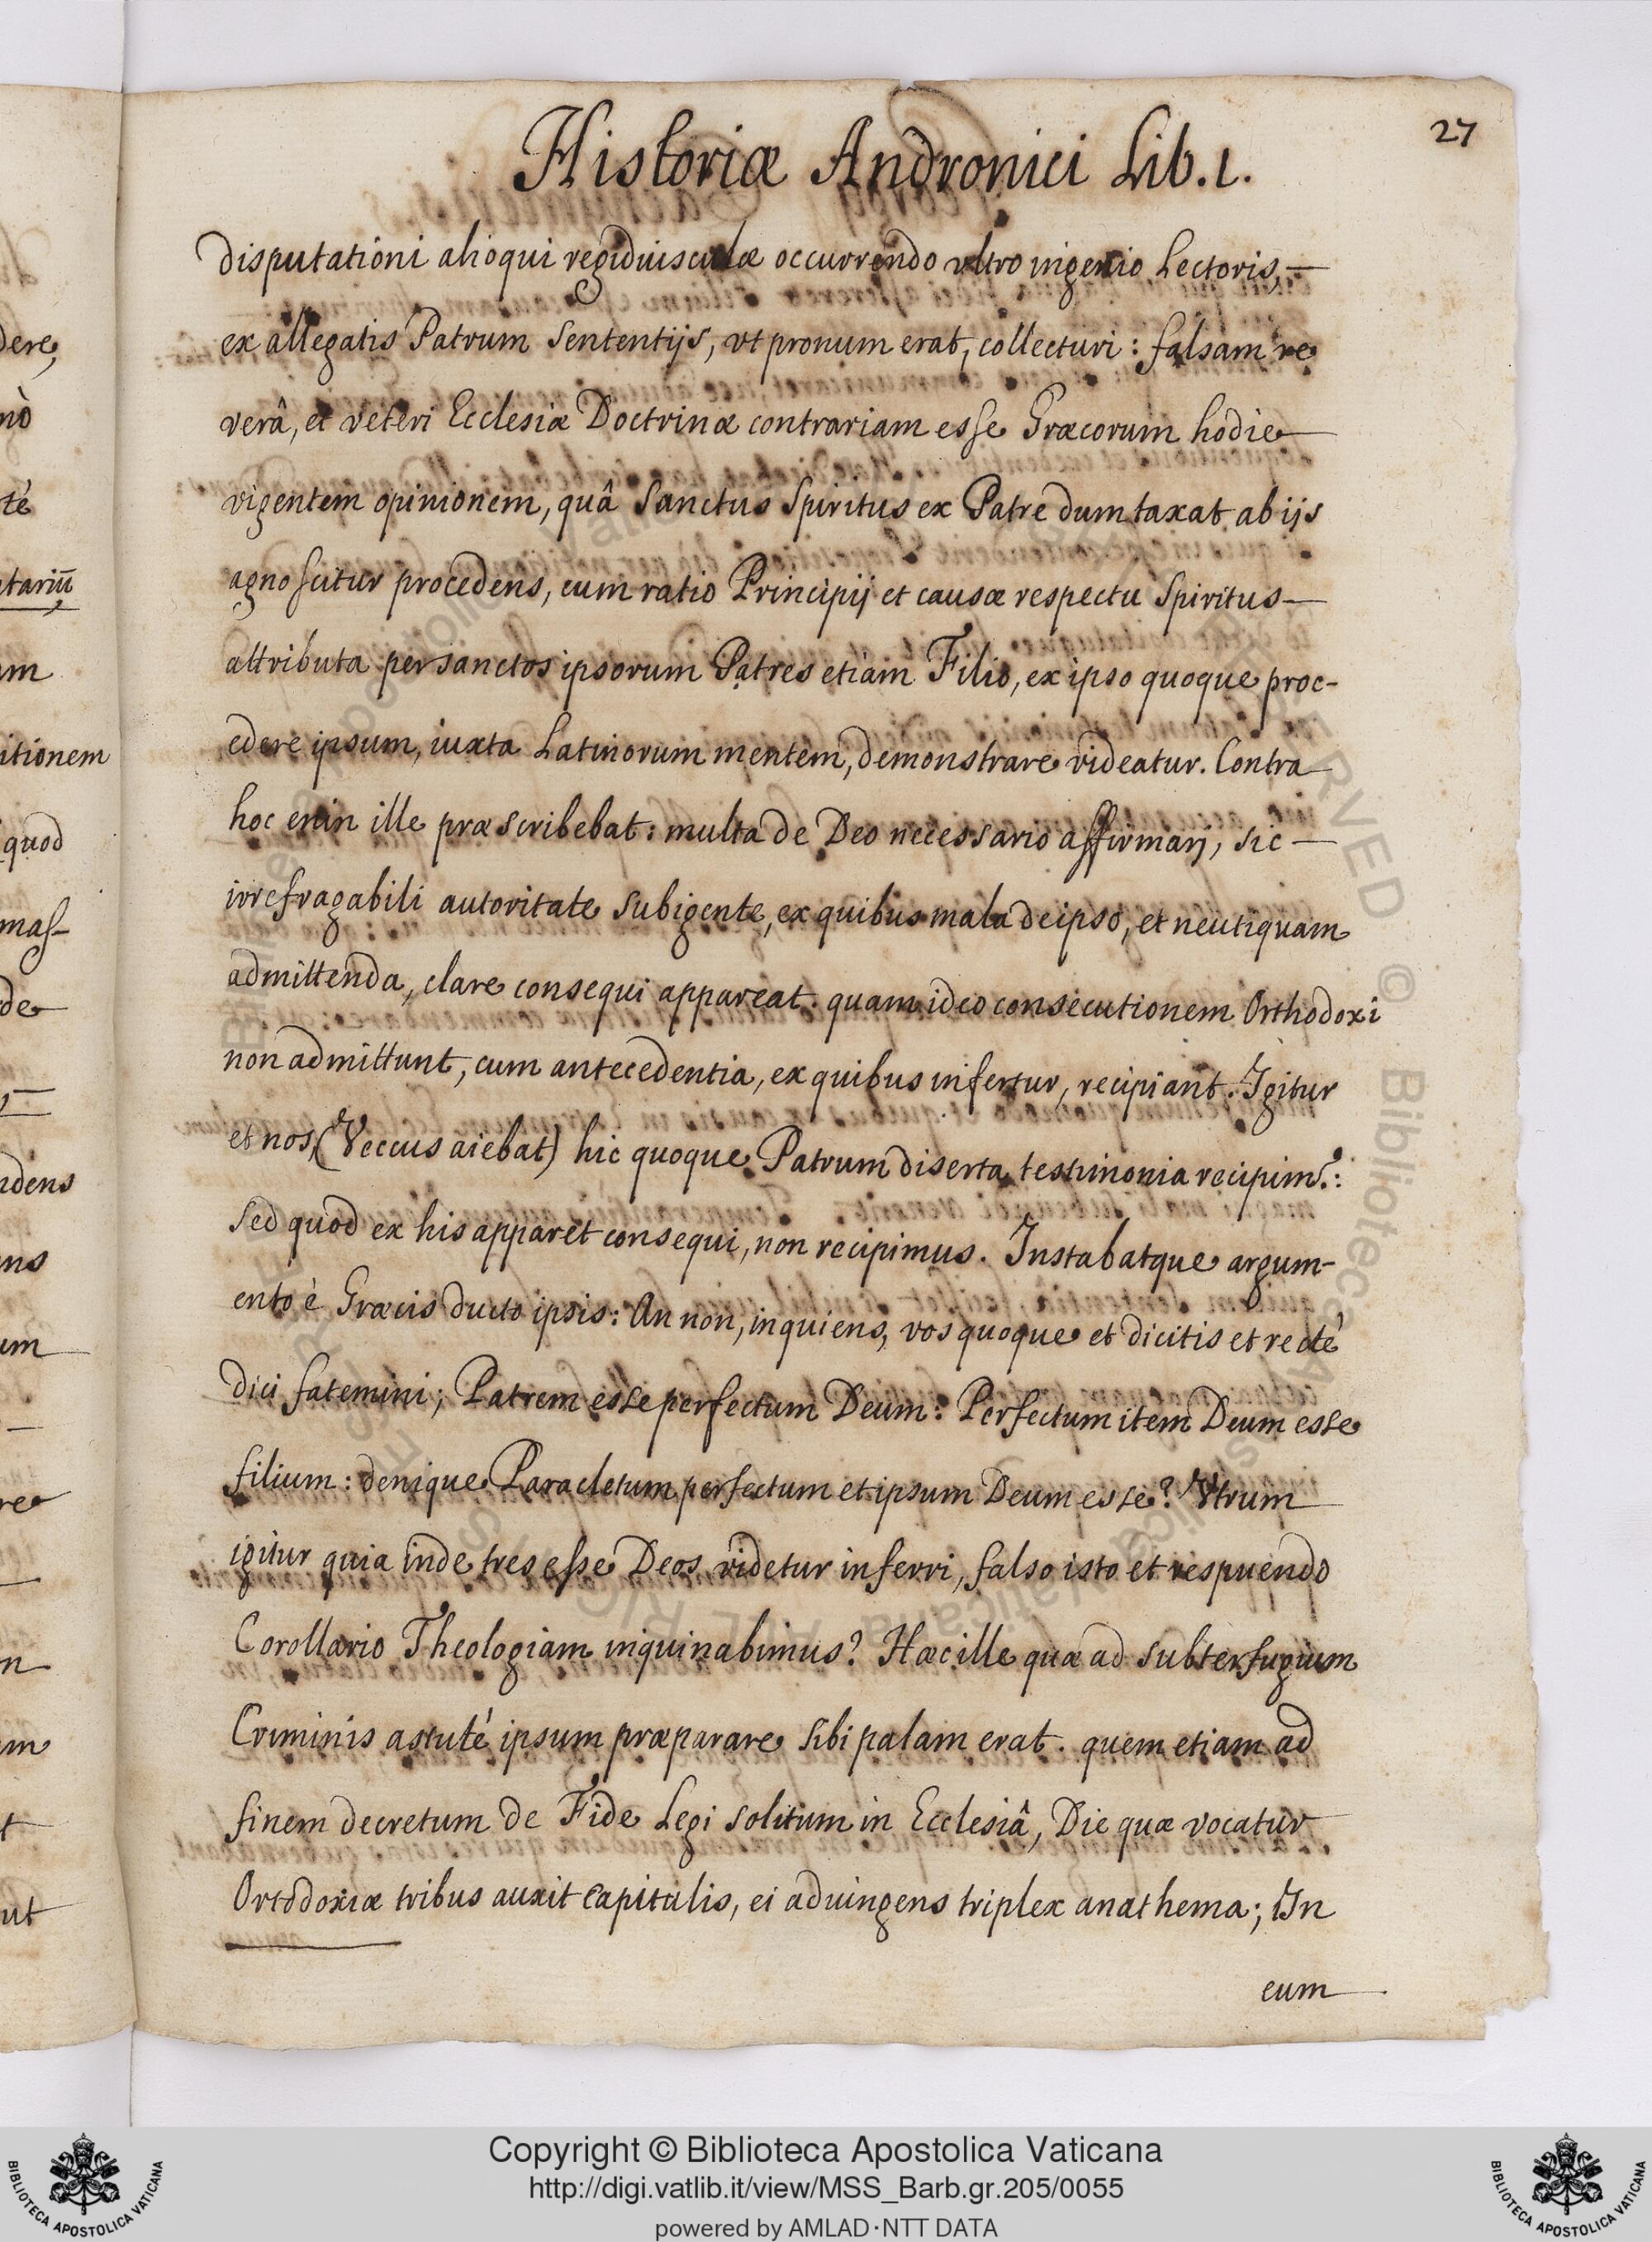 27
Historiæ Andronici Lib. 1.
disputationi alioqui regidiusculæ occurrendo vltro ingenio Lectoris,
ex allegatis Patrum Sententijs, vt pronum erat, collecturi: falsam re
verâ, et veteri Ecclesiæ Doctrinæ contrariam esse Græcorum hodie
vigentem opinionem, quâ Sanctus Spiritus ex Patre dum taxat ab ijs
agnoscitur procedens, cum ratio Principij et causæ respectu Spiritus
attributa per sanctos ipsorum Patres etiam Filio, ex ipso quoque proc-
edere ipsum, iuxta Latinorum mentem, demonstrare videatur. Contra
hoc enin ille præscribebat: multa de Deo necessario affirmarj, sic
irrefragabili autoritate subigente, ex quibus mala de ipso, et neutiquam
admittenda, clare consequi appareat. quam ideo consecutionem Orthodoxi
non admittunt, cum antecedentia, ex quibus infertur, recipiant. Igitur
et nos, (Veccus aiebat) hic quoque Patrum diserta testimonia recipim.9:
Sed quod ex his apparet consequi, non recipimus. Instabatque argum-
ento è Græcis ducto ipsis: An non, inquiens, vos quoque et dicitis et recté
dici fatemini; Patrem esse perfectum Deum: Perfectum item Deum esse
filium: denique Paracletum perfectum et ipsum Deum esse? Vtrum
igitur quia inde tres esse Deos videtur inferri, falso isto et respuendo
Corollario Theologiam inquinabimus? Hæc ille quæ ad subterfugium
Criminis astuté ipsum præparare sibi palam erat. quem etiam ad
finem decretum de Fide Legi solitum in Ecclesiâ, Die quæ vocatur
Ortodoxiæ tribus auxit capitulis, ei adiungens triplex anathema; In
eum
dere,
nò
té
tariũ
um
itionem
quod
mas-
de
ndens
ns
um
re
n
m
t
ut
Copyright © Biblioteca Apostolica Vaticana
http://digi.vatlib.it/view/MSS_Barb.gr.205/0055
powered by AMLAD·NTT DATA
BIBLIOTECA APOSTOLICA VATICANA
BIBLIOTECA APOSTOLICA VATICANA